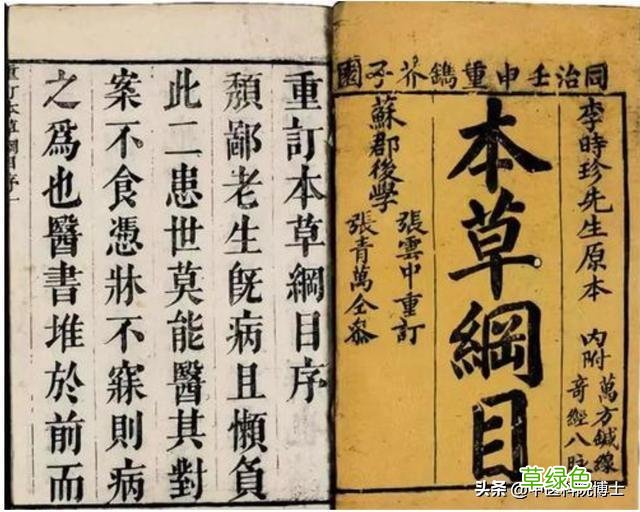 同治壬申重鐫芥子園
李時珍先生原本
內附
萬方鍼線
奇經八脉
本草綱目
蘇郡後學
張雲中重訂
張青萬仝參
重訂本草綱目序
頽鄙老生旣病且懶負
此二患世莫能醫其對
案不食憑牀不寐則病
之爲也醫書堆於前而
重訂本草綱目序一
草绿色
头条 @中医科院博士